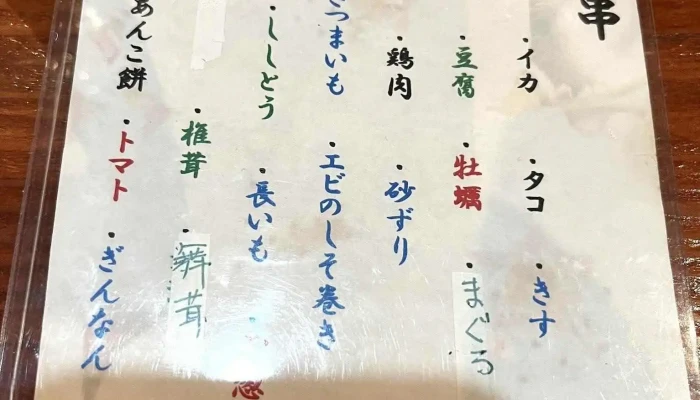 串
・イカ
・タコ
・きす
・豆腐
・牡蠣
・まぐろ
・鶏肉
・砂ずり
さつまいも
・エビのしそ巻き
・ししとう
・長いも
・椎茸
・舞茸
あんこ餅
・トマト
・ぎんなん